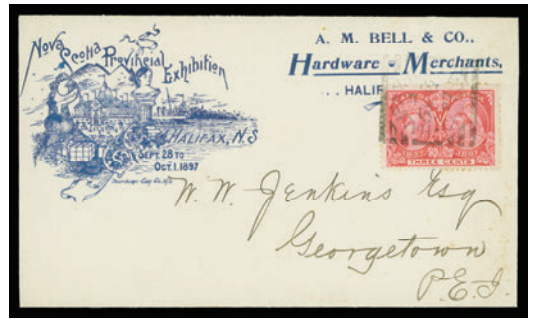 Nova Scotia Provincial Exhibition
HALIFAX, N.S
SEPT. 28 TO
OCT. 1. 1897
A. M. BELL & CO..
Hardware - Merchants,
. . HALIF
THREE CENTS
W. W. Jenkins Esq
Georgetown
P.E.I.